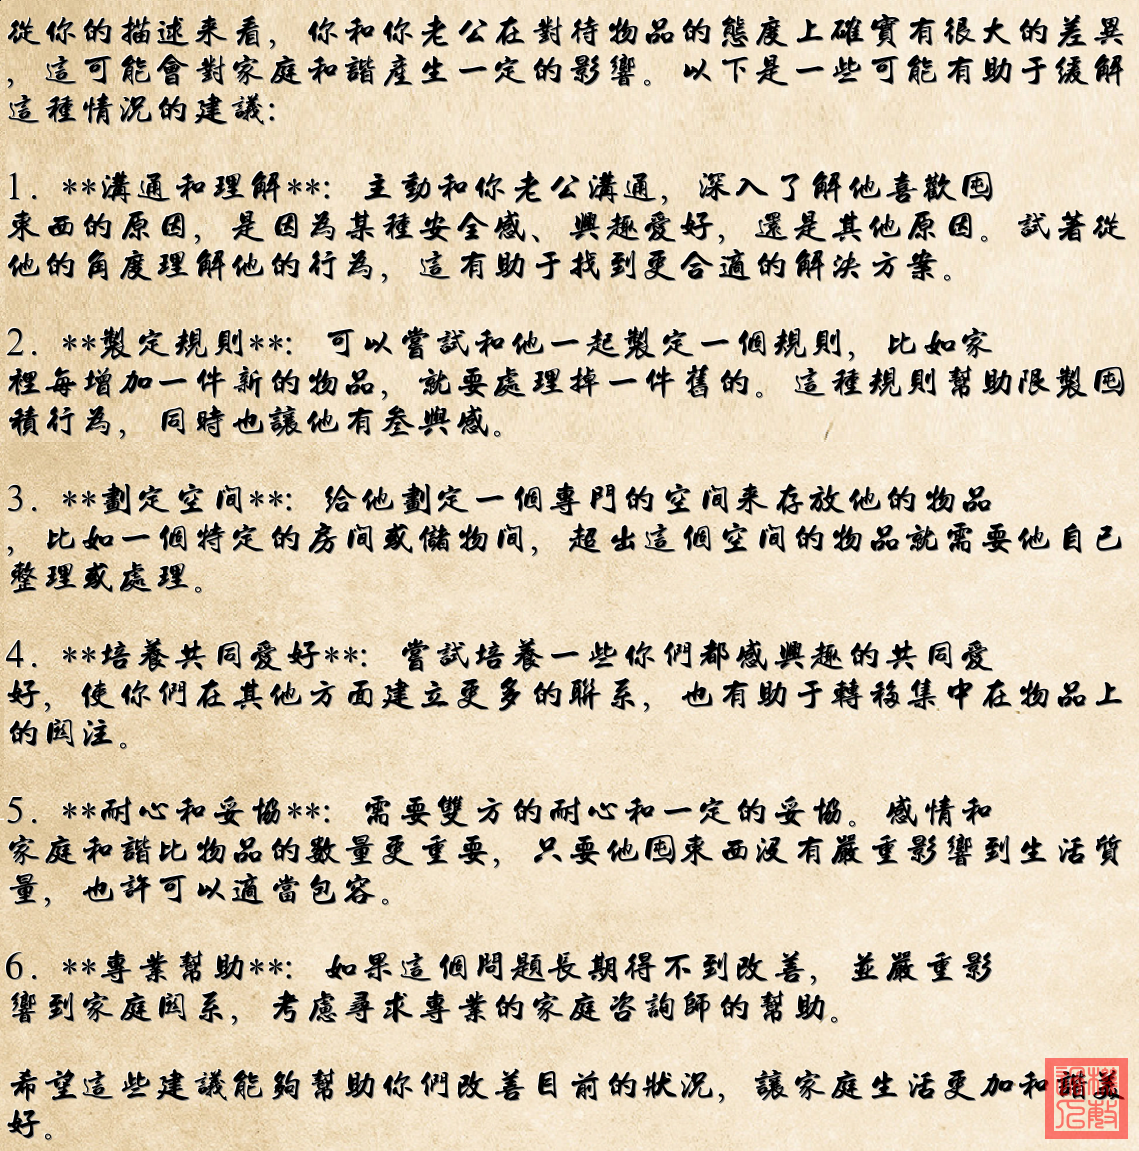 從你的描述來看，你和你老公在對待物品的態度上確實有很大的差異
，這可能會對家庭和諧產生一定的影響。以下是一些可能有助于緩解
這種情況的建議:
1. **溝通和理解**: 主動和你老公溝通，深入了解他喜歡囤
東西的原因，是因為某種安全感、興趣愛好，還是其他原因。試著從
他的角度理解他的行為，這有助于找到更合適的解決方案。
2. **製定規則**: 可以嘗試和他一起製定一個規則，比如家
裡每增加一件新的物品，就要處理掉一件舊的。這種規則幫助限製囤
積行為，同時也讓他有叁與感。
3. **劃定空间**: 给他劃定一個專門的空间來存放他的物品
，比如一個特定的房间或儲物间，超出這個空间的物品就需要他自己
整理或處理。
4. **培養共同愛好**: 嘗試培養一些你們都感興趣的共同愛
好，使你們在其他方面建立更多的聯系，也有助于轉移集中在物品上
的関注。
5. **耐心和妥協**: 需要雙方的耐心和一定的妥協。感情和
家庭和諧比物品的數量更重要，只要他囤東西沒有嚴重影響到生活質
量，也許可以適當包容。
6. **專業幫助**: 如果這個問題長期得不到改善，並嚴重影
響到家庭関系，考慮尋求專業的家庭咨詢師的幫助。
希望這些建議能夠幫助你們改善目前的狀況，讓家庭生活更加和諧美
好。